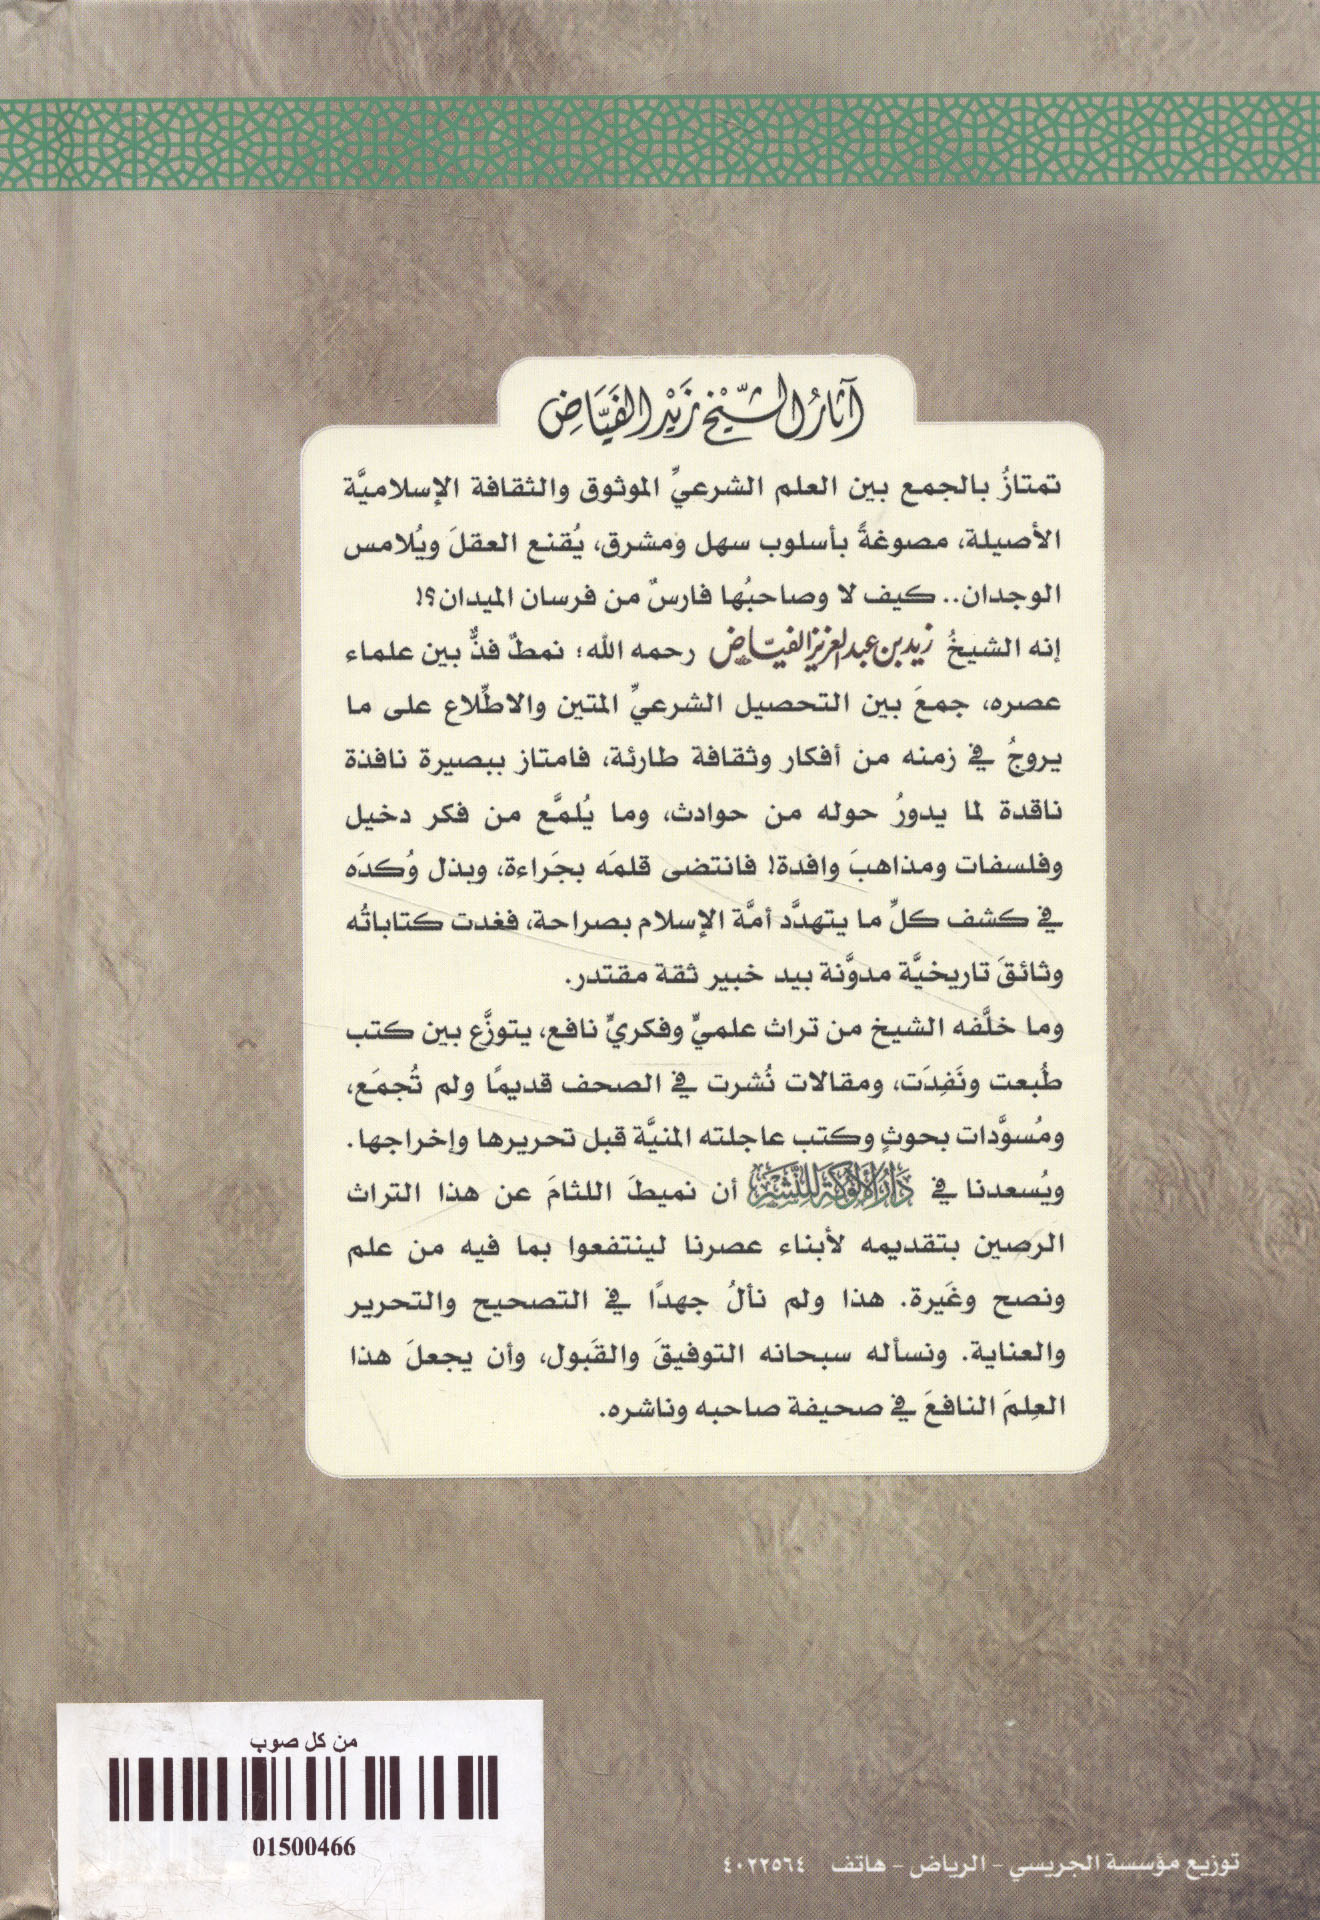 آثَارُ الشَّيْخِ زَيْدِ الفَيَّاضِ
تمتازُ بالجمع بين العلم الشرعيِّ الموثوق والثقافة الإسلاميَّة
الأصيلة، مصوغةً بأسلوب سهل ومشرق، يُقنع العقلَ ويُلامس
الوجدان.. كيف لا وصاحبُها فارسٌ من فرسان الميدان؟!
إنه الشيخُ زيد بن عبد العزيز الفيّاض رحمه الله؛ نمطٌ فذٌّ بين علماء
عصره، جمعَ بين التحصيل الشرعيِّ المتين والاطِّلاع على ما
يروجُ في زمنه من أفكار وثقافة طارئة، فامتاز ببصيرة نافذة
ناقدة لما يدورُ حوله من حوادث، وما يُلمَّع من فكر دخيل
وفلسفات ومذاهبَ وافدة! فانتضى قلمَه بجَراءة، وبذل وُكدَه
في كشف كلِّ ما يتهدَّد أمَّة الإسلام بصراحة، فغدت كتاباتُه
وثائقَ تاريخيَّة مدوَّنة بيد خبير ثقة مقتدر.
وما خلَّفه الشيخ من تراث علميٍّ وفكريٍّ نافع، يتوزَّع بين كتب
طُبعت ونَفِدَت، ومقالات نُشرت في الصحف قديمًا ولم تُجمَع،
ومُسوَّدات بحوثٍ وكتب عاجلته المنيَّة قبل تحريرها وإخراجها.
ويُسعدنا في دَارُ الأَلُوكَةِ لِلنَّشْرِ أن نميطَ اللثامَ عن هذا التراث
الرصين بتقديمه لأبناء عصرنا لينتفعوا بما فيه من علم
ونصح وغَيرة. هذا ولم نألُ جهدًا في التصحيح والتحرير
والعناية. ونسأله سبحانه التوفيقَ والقَبول، وأن يجعلَ هذا
العِلمَ النافعَ في صحيفة صاحبه وناشره.
من كل صوب
01500466
توزيع مؤسسة الجريسي - الرياض - هاتف ٤٠٢٢٥٦٤